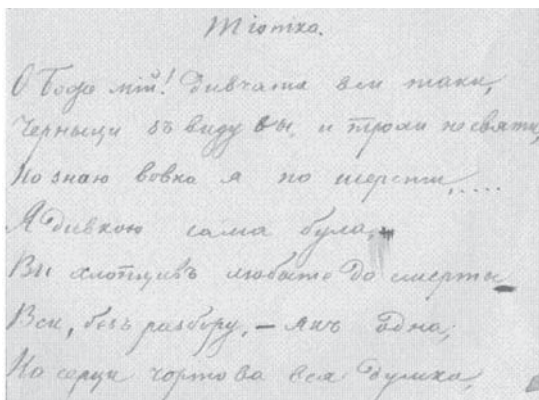 Тіотка.
О Боже мій! дивчата вси таки,
Черныци съ виду вы, и трохи не святи,
Но знаю вовка я по шерсти,....
Я дивкою сама була,
Вы хлопцивъ любыте до смерты
Вси, безъ разбору, – якъ одна;
На серци чортова вся думка,